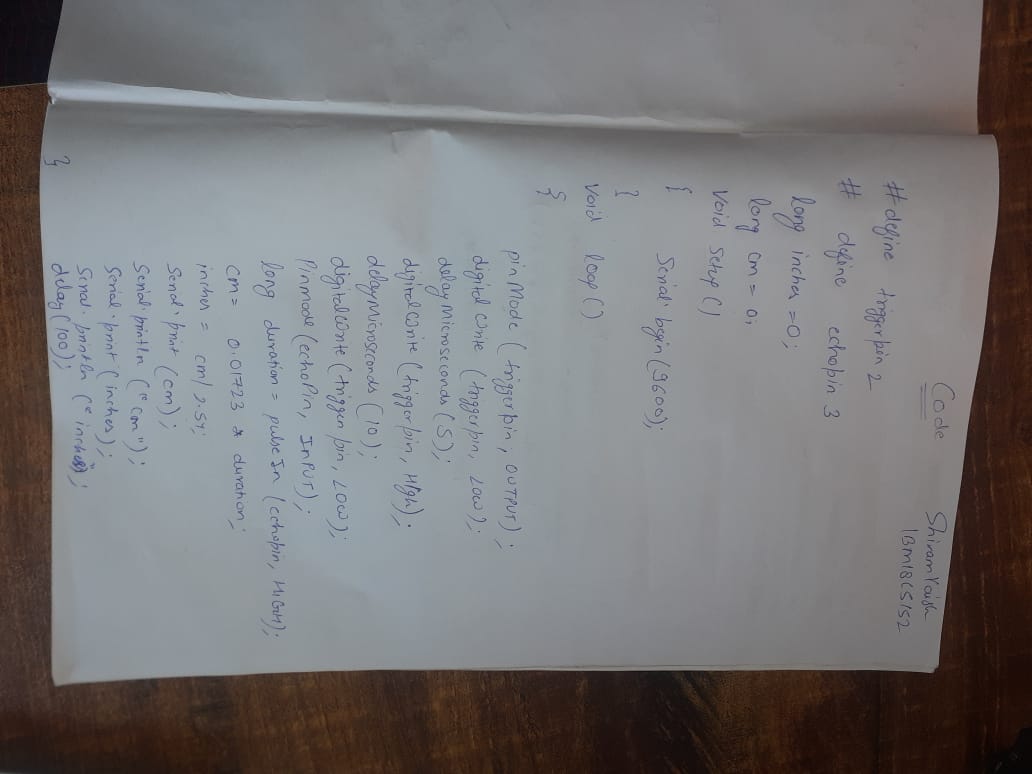 Code
Shivam Vaish
1BM18CS152
#define triggerpin 2
# define echopin 3
long inches =0;
long cm = 0;
Void Setup ()
{
Serial. begin (9600);
}
Void loop ()
{
pinMode (triggerpin, OUTPUT);
digitalWrite (triggerpin, LOW);
delayMicroseconds (5);
digitalWrite (triggerpin, High);
delayMicroseconds (10);
digitalWrite (trigger pin, LOW);
Pinmode (echoPin, INPUT);
long duration = pulseIn (echopin, HIGH);
cm = 0.01723 * duration;
inches = cm/2.54;
Serial.print (cm);
Serial.println ("cm");
Serial.print (inches);
Serial.println ("inches");
delay (100);
}